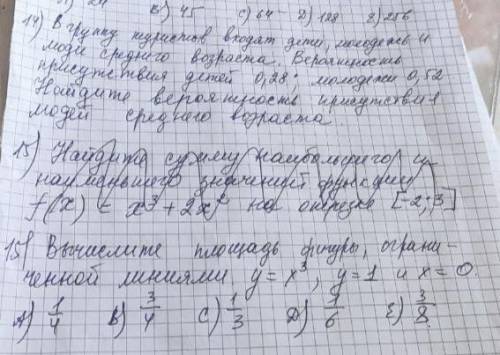 В) 45 С) 64 Д) 128 Е) 256
14) В группу туристов входят дети, молодежь и
люди среднего возраста. Вероятность
присутствия детей 0,28; молодежи 0,52
Найдите вероятность присутствия
людей среднего возраста
15) Найдите сумму наибольшего и
наименьшего значений функции
f(x) = x³ + 2x² на отрезке [-2; 3]
15) Вычислите площадь фигуры, ограни-
ченной линиями y = x³, y = 1 и x = 0.
А) 1/4 В) 3/4 С) 1/3 Д) 1/6 Е) 3/8